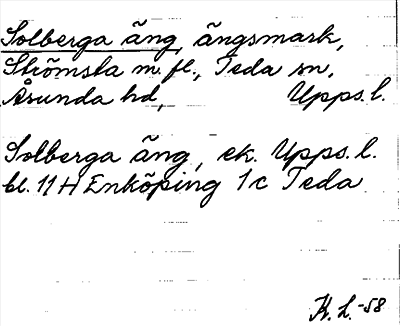 Solberga äng, ängsmark,
Strömsta m. fl., Teda sn,
Åsunda hd, Upps. l.
Solberga äng, ek. Upps. l.
bl. 11 H Enköping 1c Teda
K. L. -58